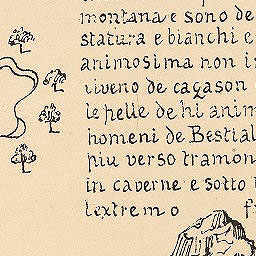 montana e sono de
statura e bianchi e
animosima non i
viveno de cagason
le pelle de hi anim
homeni de Bestial
piu verso tramon
in caverne e sotto
lextremo f